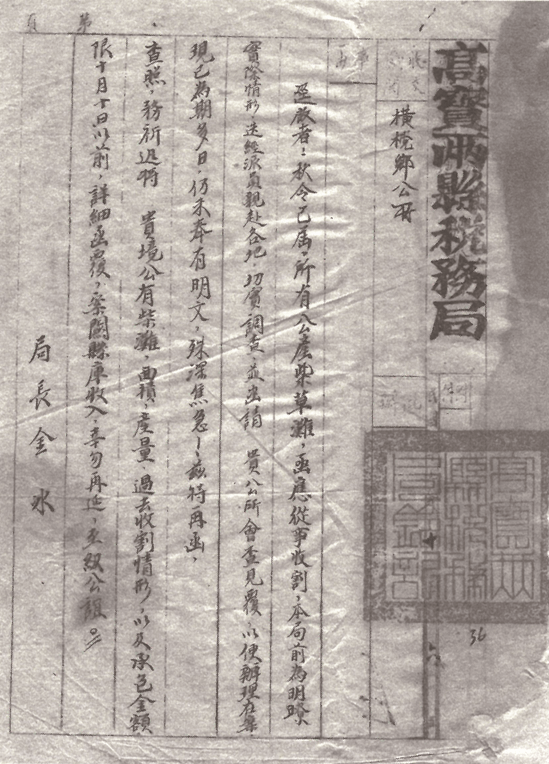 高寶兩縣税務局
橫桅鄉公所
逕啟者：秋令已届，所有公產柴草灘，亟應從事收割，本局前為明瞭
實際情形，迭經派員親赴各地，切實調查，並函請　貴公所會查見覆，以便辦理在案
現已為期多日，仍未奉有明文，殊深焦急！兹特再函，
查照，務祈迅將　貴境公有柴灘，面積，產量，過去收割情形，以及承包金額
限十月十日以前，詳細函覆，案關縣庫收入，幸勿再延，至級公誼。
局長金冰
36
第　頁